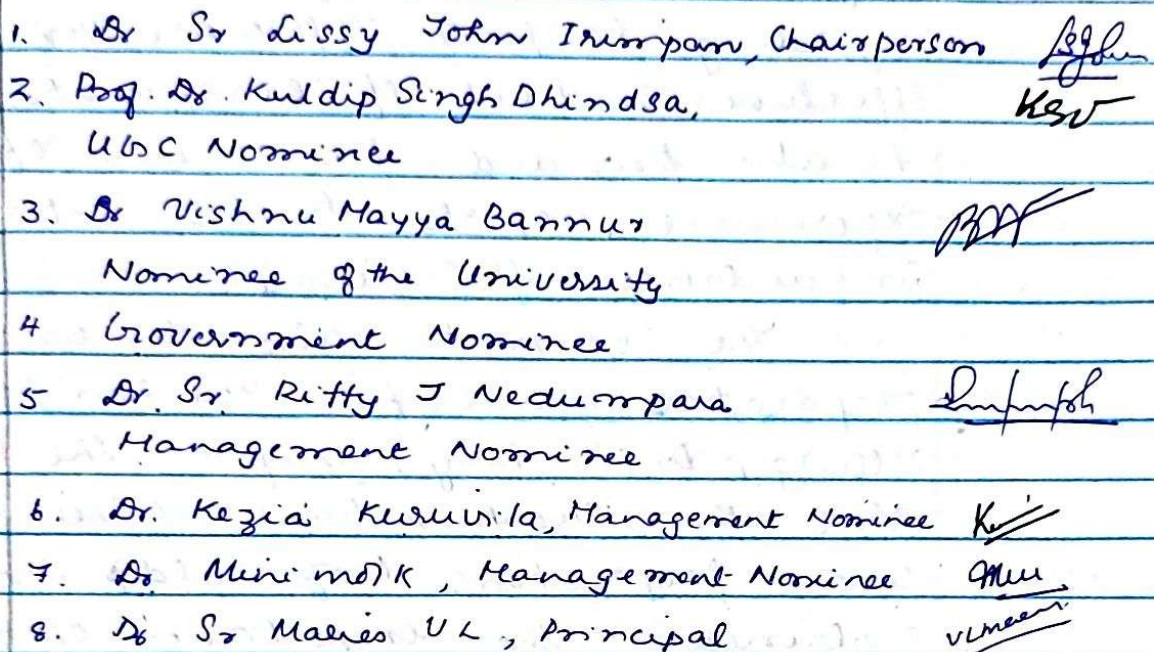 1. Dr Sr Lissy John Irimpan, Chairperson
2. Prof. Dr. Kuldip Singh Dhindsa, KSD
UGC Nominee
3. Dr Vishnu Mayya Bannur
Nominee of the University
4 Government Nominee
5 Dr. Sr. Ritty J Nedumpara
Management Nominee
6. Dr. Kezia Kuruvila, Management Nominee
7. Dr Minimol K, Management Nominee
8. Dr Sr Maries V L, Principal